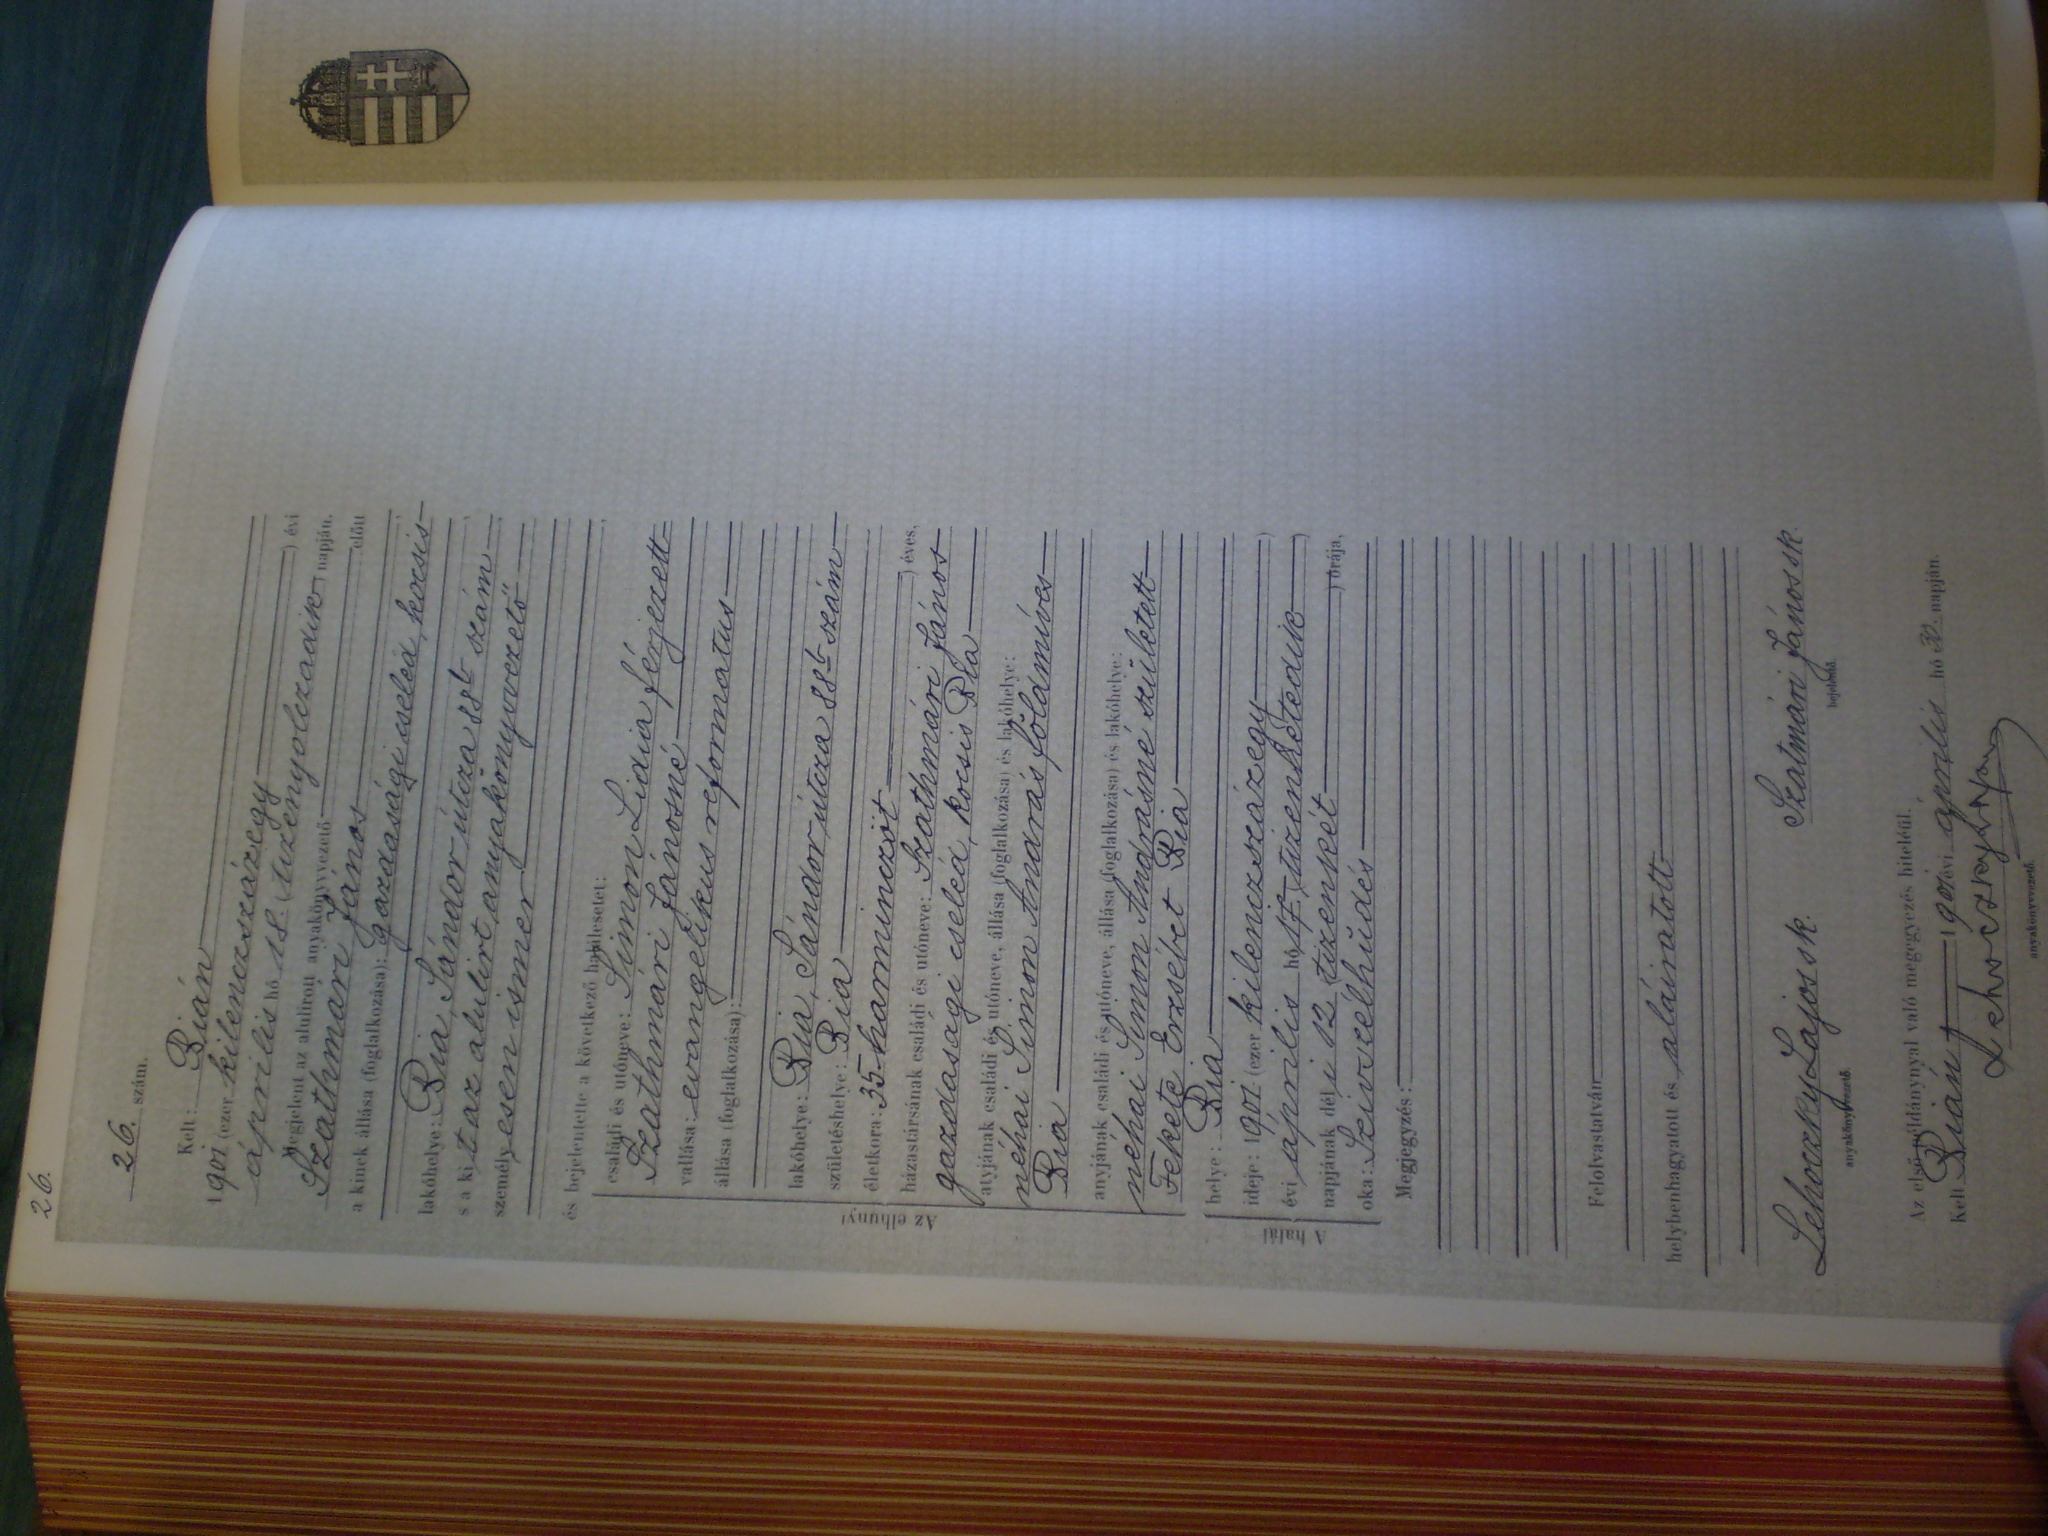 26.
26. szám.
Kelt: Bián
1901 (ezer kilenczszázegy) évi
április hó 18. (tizennyolczadik) napján.
Megjelent az alulirott anyakönyvvezető előtt
Szathmári János
a kinek állása (foglalkozása): gazdasági cseléd, kocsis
lakóhelye: Bia, Sándor útcza 88b szám
s a kit az alulirt anyakönyvvezető
személyesen ismer
és bejelentette a következő halálesetet:
Az elhunyt
családi és utóneve: Simon Lidia férjezett
Szathmári Jánosné
vallása: evangelikus reformatus
állása (foglalkozása):
lakóhelye: Bia, Sándor útcza 88b szám
születéshelye: Bia
életkora: 35 harminczöt) éves,
házastársának családi és utóneve: Szathmári János
gazdasagi cseléd, kocsis Bia
atyjának családi és utóneve, állása (foglalkozása) és lakóhelye:
néhai Simon András földmíves
Bia
anyjának családi és utóneve, állása (foglalkozása) és lakóhelye:
néhai Simon Andrásné született
Fekete Erzsébet Bia
A halál
helye: Bia
ideje: 1901. (ezer kilenczszázegy)
évi április hó 17. (tizenhetedik)
napjának dél u 12 (tizenkét) órája,
oka: Szivszélhűdés
Megjegyzés:
Felolvastatván
helybenhagyatott és aláiratott
Lehoczky Lajos sk. Szatmári János sk.
anyakönyvvezető. bejelentő.
Az első példánynyal való megegyezés hiteléül.
Kelt Bián 1901 évi április hó 30. napján.
Lehoczky Lajos
anyakönyvvezető.